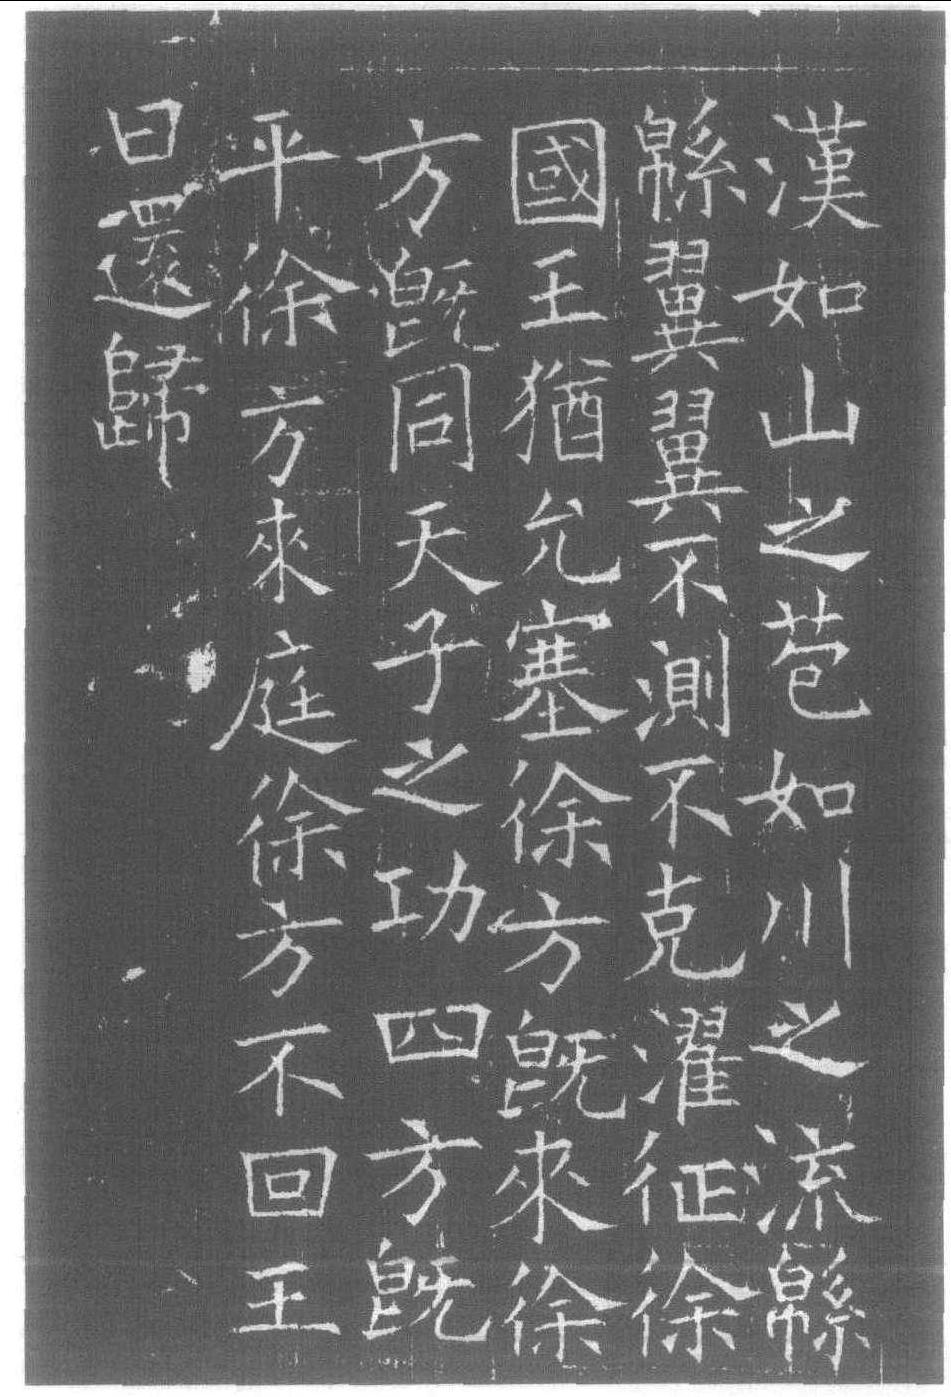 漢如山之苞如川之流緜
緜翼翼不測不克濯征徐
國王猶允塞徐方旣來徐
方旣同天子之功四方旣
平徐方來庭徐方不回王
曰還歸